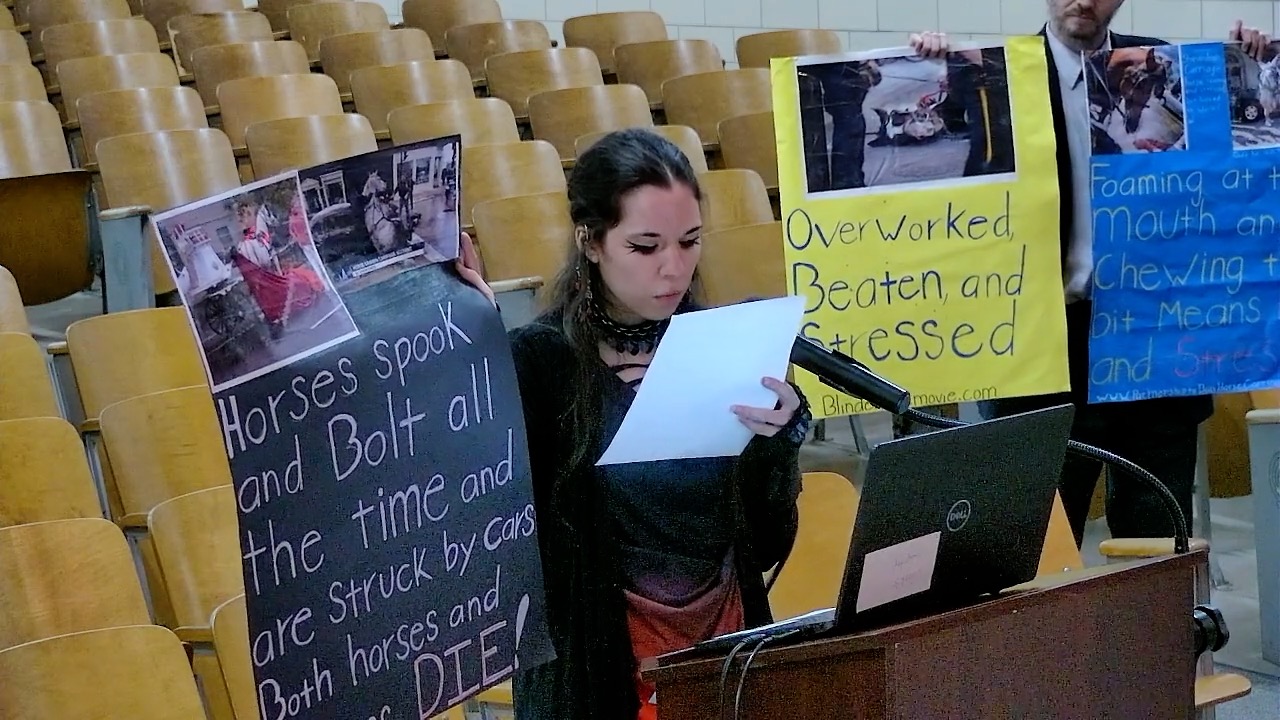 Horses spook
and Bolt all
the time and
are struck by cars
Both horses and
DIE!
Overworked,
Beaten, and
Stressed
Foaming at t
Mouth an
Chewing t
bit Means
and Stres
DELL